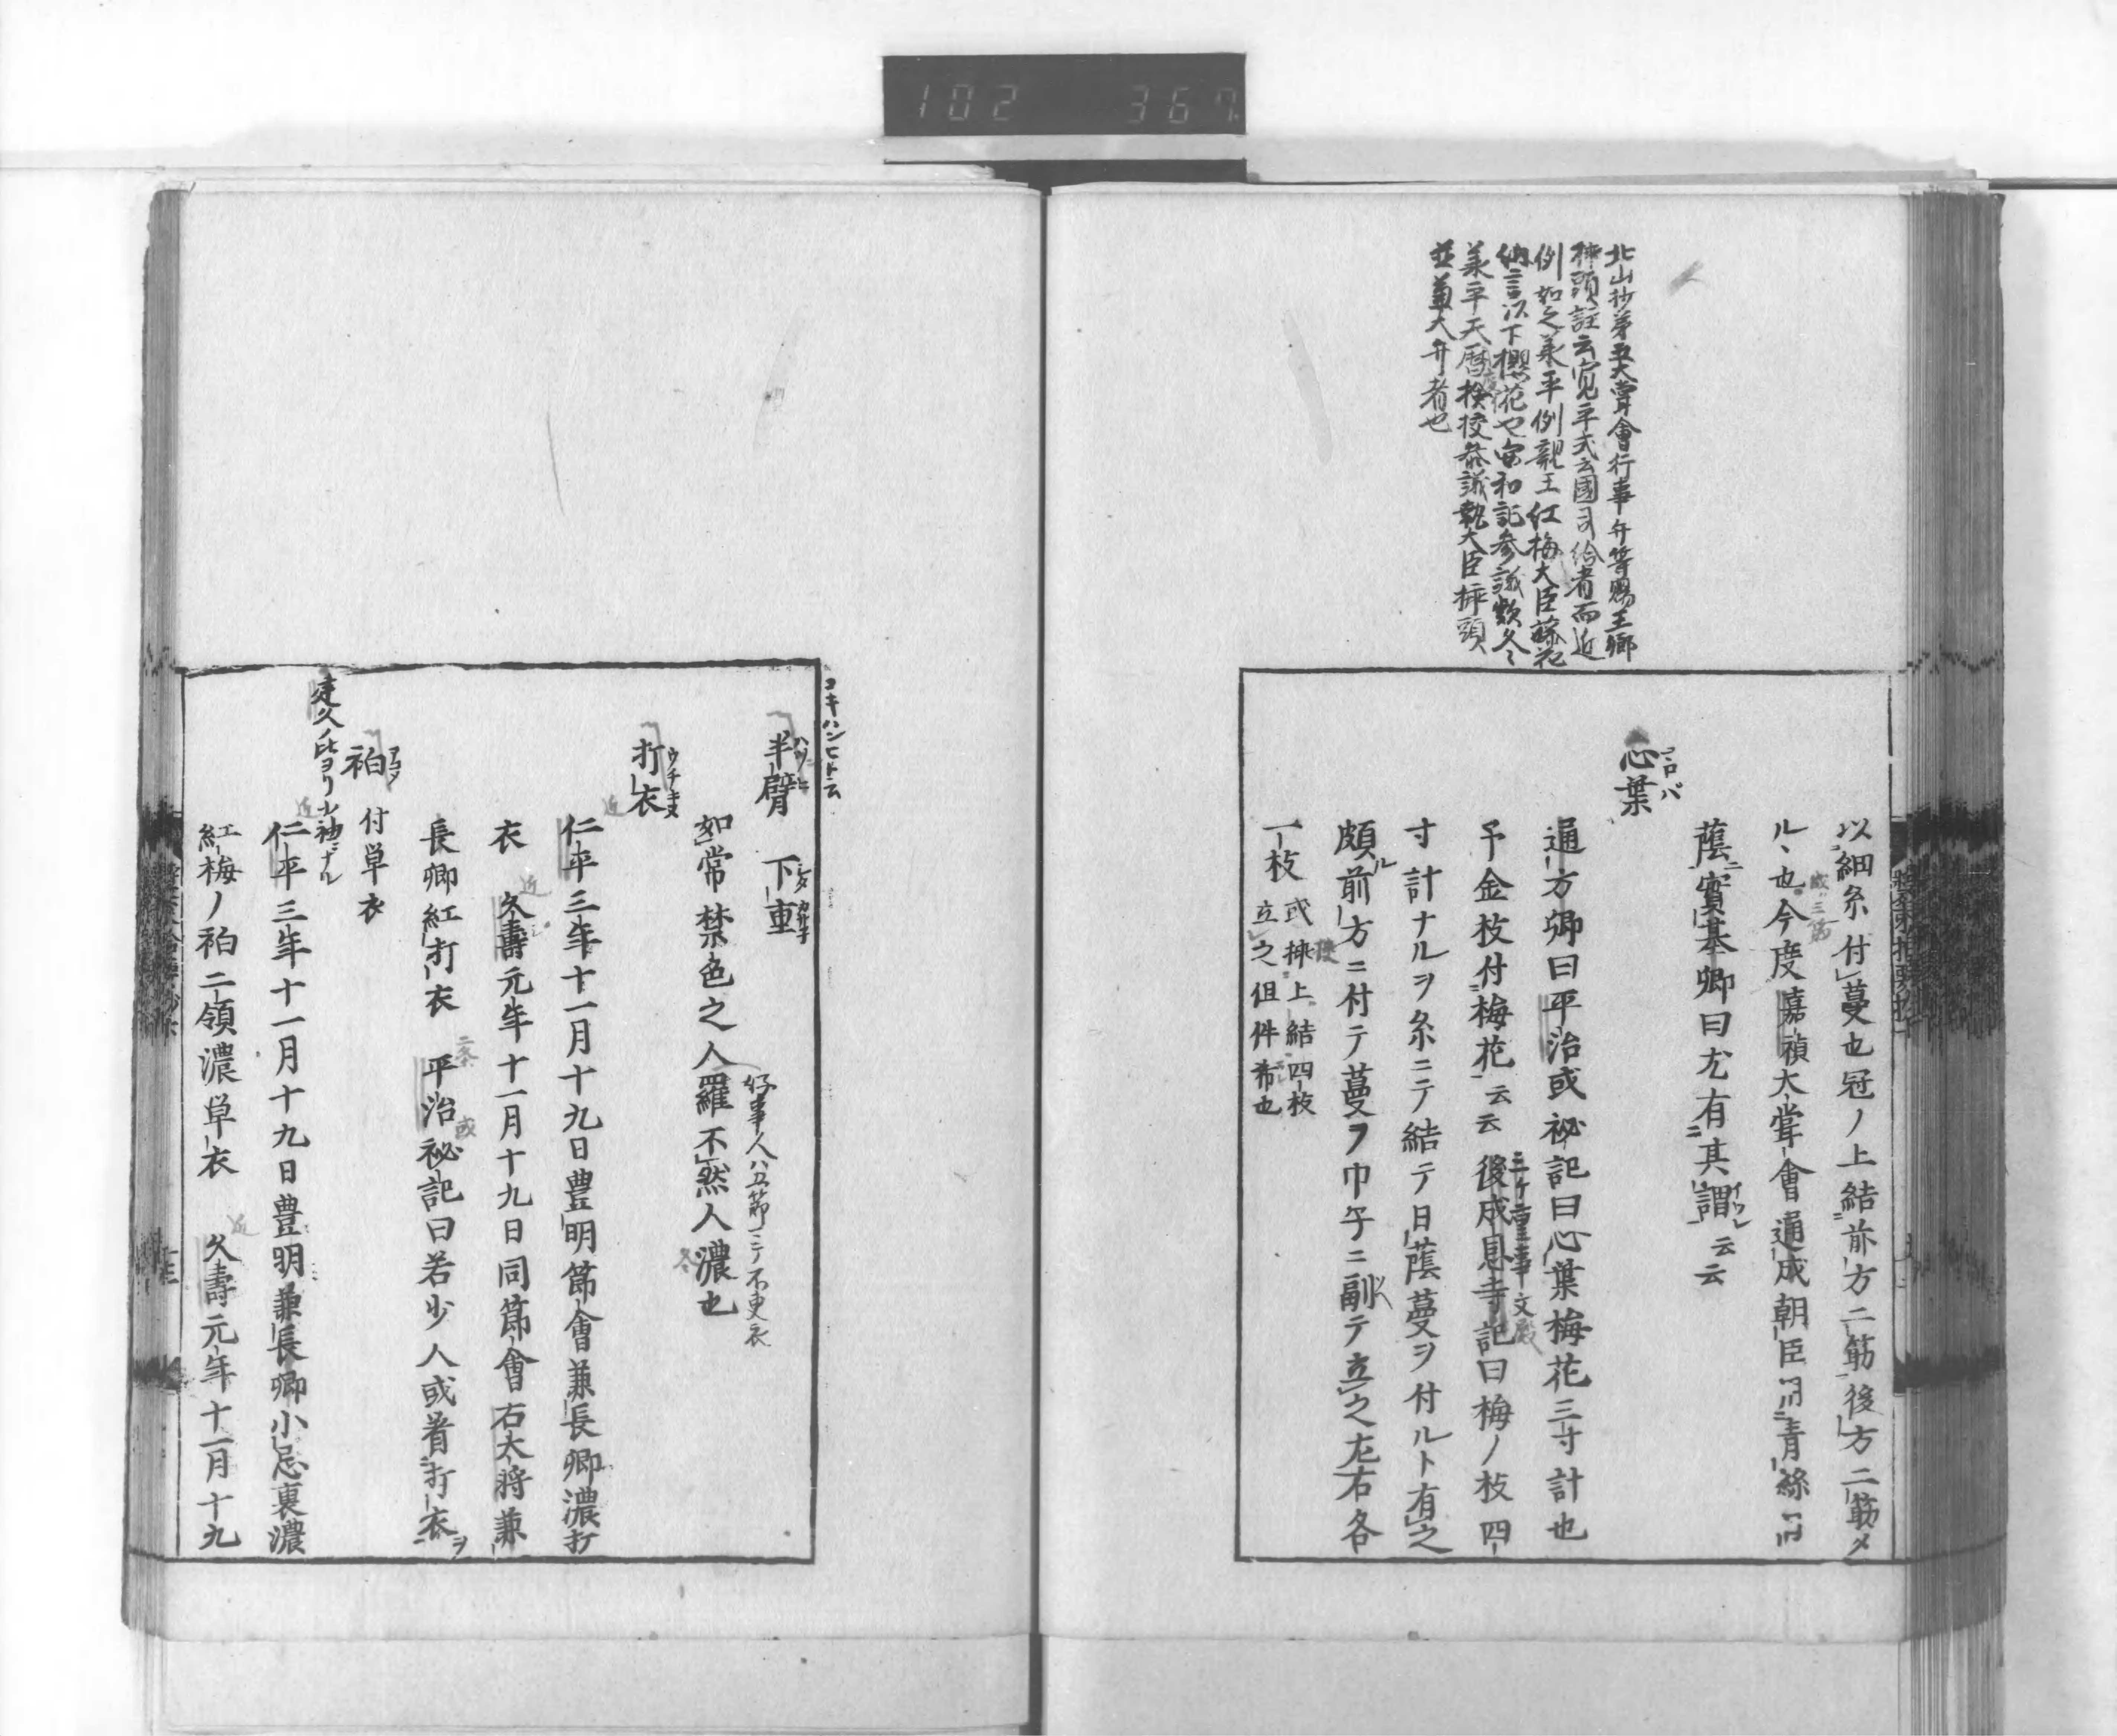 102 367
北山抄第五大嘗會行事弁等賜王卿
挿頭註云寛平式云國司給者而近
例如之承平例親王紅梅大臣藤花
納言以下櫻花也安和記参議款冬
承平天暦検校参議執大臣挿頭
並兼大弁者也
以細糸付蔓也冠ノ上結前方二筋後方二筋〆
ル丶也今度嘉禎大嘗會通成朝臣 青絲
或三筋
蔭實基卿曰尤有其謂云云
イワレ
心葉
コヽロバ
通方卿曰平治或祕記曰心葉梅花三寸計也
予金枝付梅花云云 後成恩寺記曰梅ノ枝四
三ケ重事文殿
寸計ナルヲ糸ニテ結テ日蔭蔓ヲ付ルト有之
頗前方ニ付テ蔓ヲ巾子ニ副テ立之左右各
一枝 或挿上結四枝
立之但件希也
コキハンヒト云
半臂 下重
ハンヒ シタカサネ
如常禁色之人羅不然人濃也
好事人ハ五節ニテ不更衣
打衣
ウチキヌ
仁平三年十一月十九日豊明節會兼長卿濃打
衣 久壽元年十一月十九日同節會右大将兼
長卿紅打衣 平治祕記曰若少人或着打衣ヲ
袙 付単衣
アコメ
建久ノ比ヨリ小袖ニナル
仁平三年十一月十九日豊明兼長卿小忌裏濃
紅梅ノ袙二領濃単衣 久壽元年十一月十九